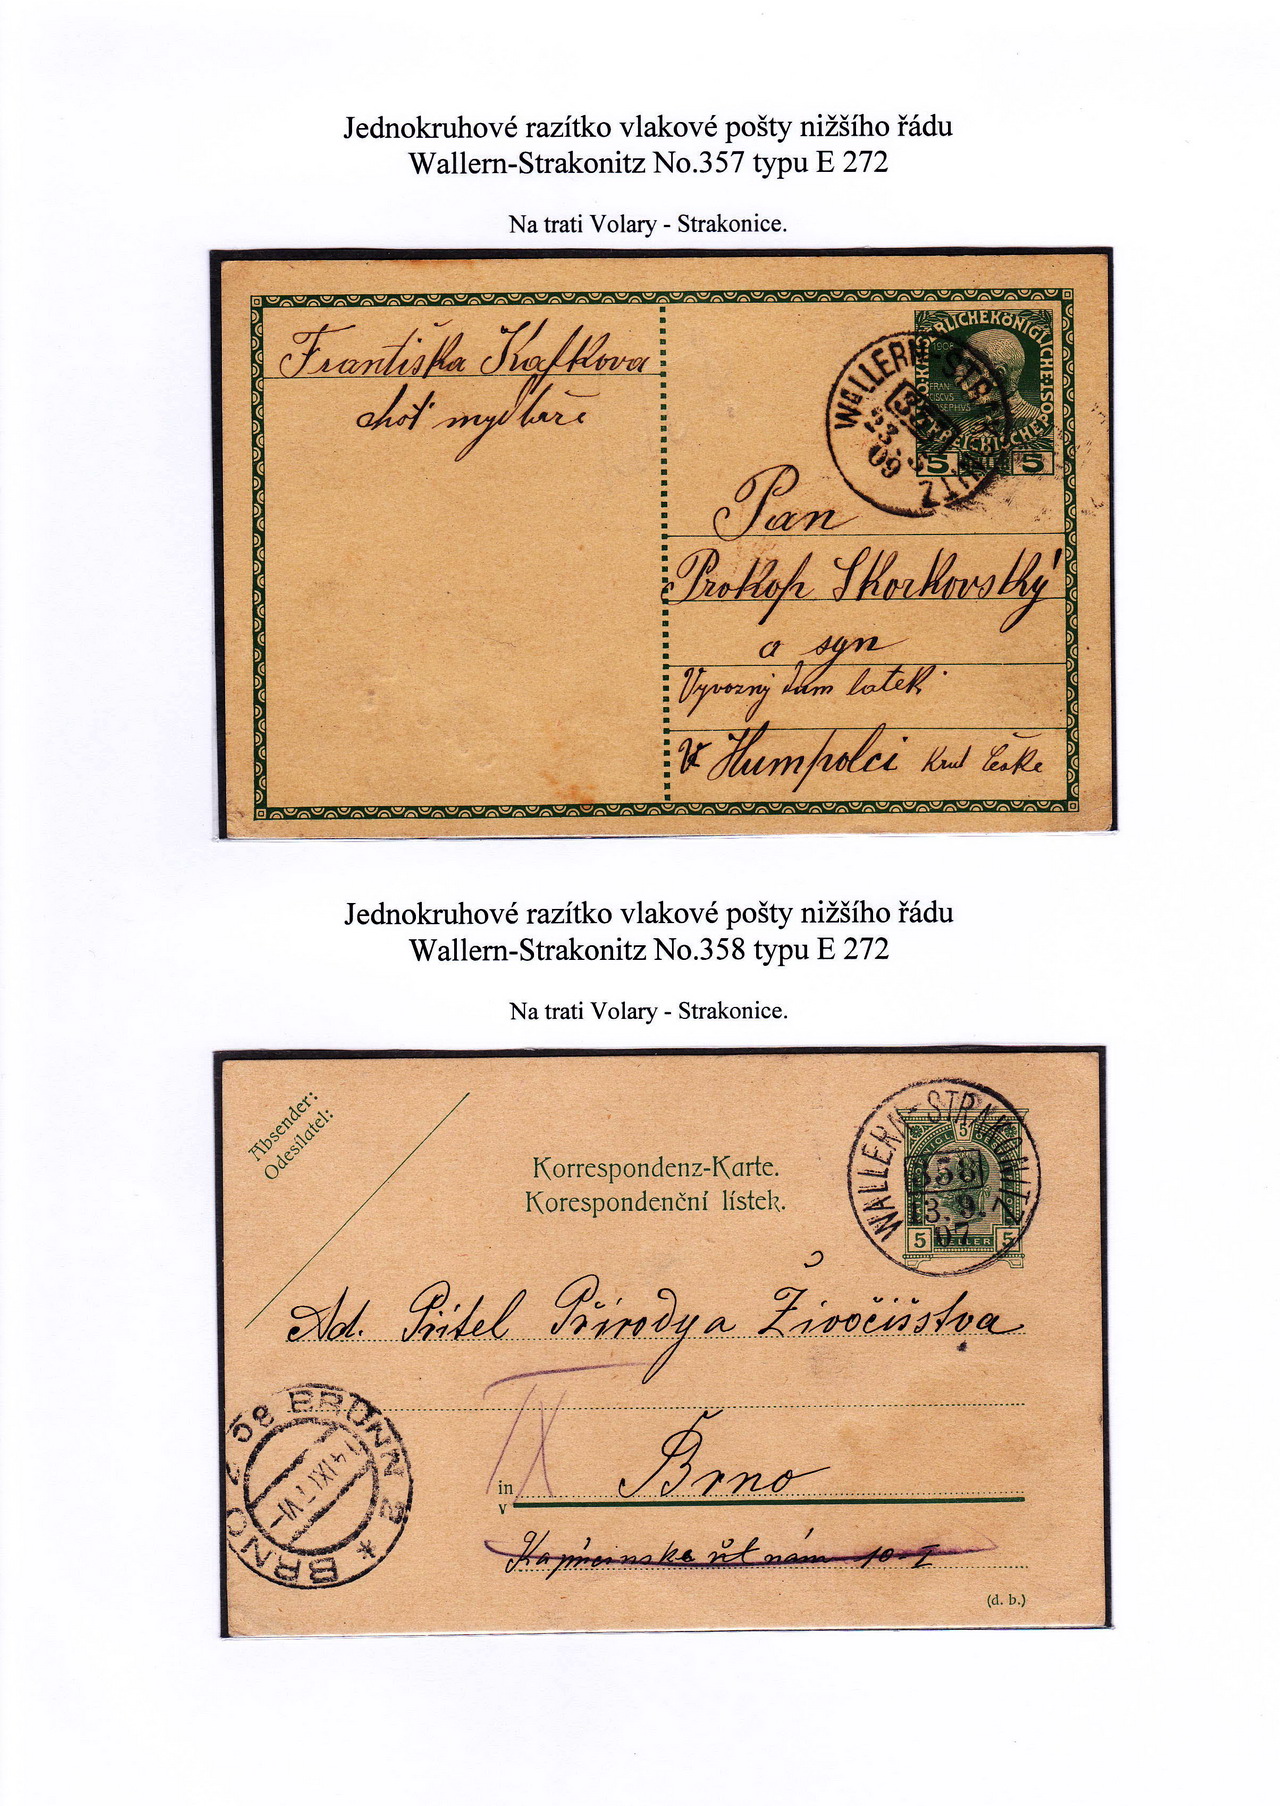 Jednokruhové razítko vlakové pošty nižšího řádu
Wallern-Strakonitz No.357 typu E 272
Na trati Volary - Strakonice.
Františka Kafkova
choť mydláře
WALLERN-STRAKONITZ
357
23.
09
5 5
Pan
Prokop Skorkovský
a syn
Vývozný dům látek
v Humpolci
Jednokruhové razítko vlakové pošty nižšího řádu
Wallern-Strakonitz No.358 typu E 272
Na trati Volary - Strakonice.
Absender:
Odesílatel:
Korrespondenz-Karte.
Korespondenční lístek.
WALLERN-STRAKONITZ
358
3.9.
07
5 HELLER 5
Ad. Přítel Přírody a Živočišstva
IX
in
v
Brno
nám 10-I
BRÜNN 2 * BRNO 2
(d. b.)